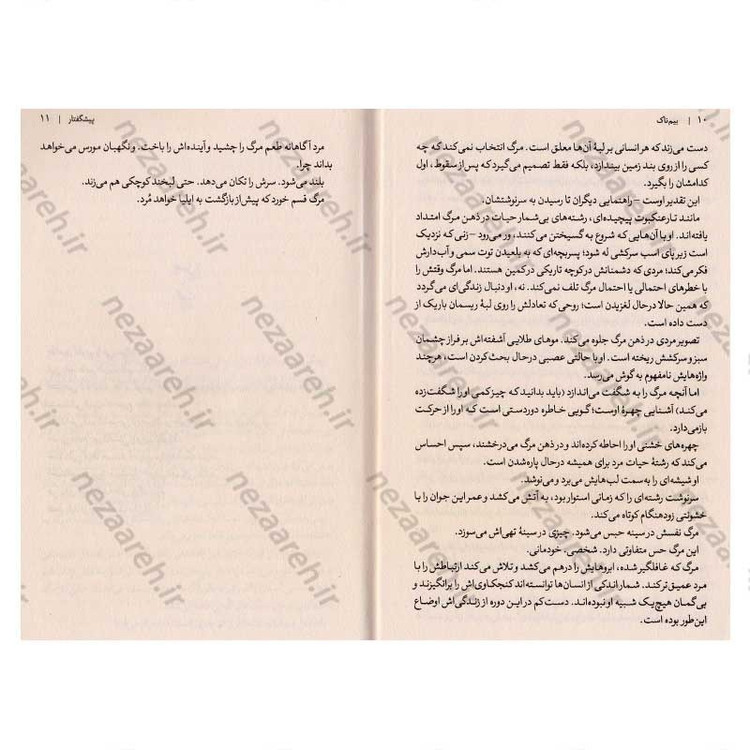 ۱۰ | بیم‌ناک
دست می‌زند که هر انسانی بر لبهٔ آن‌ها معلق است. مرگ انتخاب نمی‌کند که چه
کسی را از روی بند زمین بیندازد، بلکه فقط تصمیم می‌گیرد که پس از سقوط، اول
کدامشان را بگیرد.
این تقدیر اوست – راهنمایی دیگران تا رسیدن به سرنوشتشان.
مانند تار عنکبوت پیچیده‌ای، رشته‌های بی‌شمار حیات در ذهن مرگ امتداد
یافته‌اند. او با آن‌هایی که شروع به گسیختن می‌کنند، ور می‌رود – زنی که نزدیک
است زیر پای اسب سرکشی له شود؛ پسربچه‌ای که به بلعیدن توت سمی و آب‌دارش
فکر می‌کند؛ مردی که دشمنانش در کوچه تاریکی در کمین هستند. اما مرگ وقتش را
با خطرهای احتمالی یا احتمال مرگ تلف نمی‌کند. نه، او دنبال زندگی‌ای می‌گردد
که همین حالا درحال لغزیدن است؛ روحی که تعادلش را روی لبهٔ ریسمان باریک از
دست داده است.
تصویر مردی در ذهن مرگ جلوه می‌کند. موهای طلایی آشفته‌اش بر فراز چشمان
سبز و سرکشش ریخته است. او با حالتی عصبی درحال بحث‌کردن است، هرچند
واژه‌هایش نامفهوم به گوش می‌رسد.
اما آنچه مرگ را به شگفت می‌اندازد (باید بدانید که چیز کمی او را شگفت‌زده
می‌کند) آشنایی چهرهٔ اوست؛ گویی خاطره دوردستی است که او را از حرکت
بازمی‌دارد.
چهره‌های خشنی او را احاطه کرده‌اند و در ذهن مرگ می‌درخشند، سپس احساس
می‌کند که رشتهٔ حیات مرد برای همیشه درحال پاره‌شدن است.
او شیشه‌ای را به‌سمت لب‌هایش می‌برد و می‌نوشد.
سرنوشت رشته‌ای را که زمانی استوار بود، به آتش می‌کشد و عمر این جوان را با
خشونتی زودهنگام کوتاه می‌کند.
مرگ نفسش در سینه حبس می‌شود. چیزی در سینهٔ تهی‌اش می‌سوزد.
این مرگ حس متفاوتی دارد. شخصی. خودمانی.
مرگ که غافلگیر شده، ابروهایش را درهم می‌کشد و تلاش می‌کند ارتباطش را با
مرد عمیق‌تر کند. شمار اندکی از انسان‌ها توانسته‌اند کنجکاوی‌اش را برانگیزند و
بی‌گمان هیچ‌یک شبیه او نبوده‌اند. دست‌کم در این دوره از زندگی‌اش اوضاع
این‌طور بوده است.
پیشگفتار | ۱۱
مرد آگاهانه طعم مرگ را چشید و آینده‌اش را باخت. و نگهبان مورس می‌خواهد
بداند چرا.
بلند می‌شود. سرش را تکان می‌دهد. حتی لبخند کوچکی هم می‌زند.
مرگ قسم خورد که پیش از بازگشت به ایلیا خواهد مُرد.
nezaareh.ir